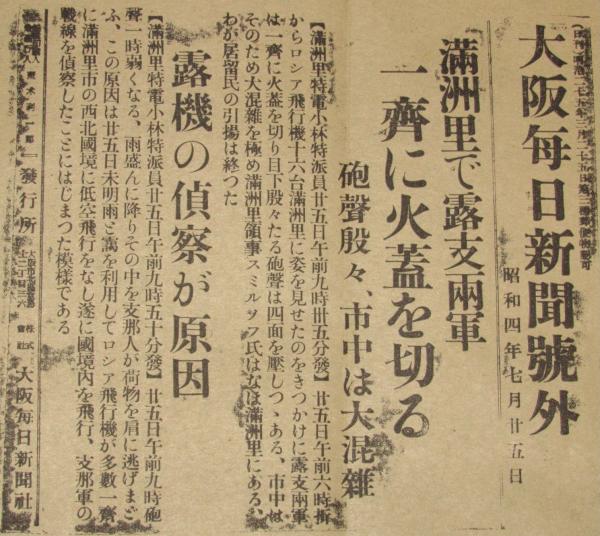 大阪每日新聞號外
昭和四年七月廿五日
滿洲里で露支兩軍
一齊に火蓋を切る
砲聲殷々、市中は大混雜
【滿洲里特電小林特派員廿五日午前九時卅五分發】廿五日午前六時折
からロシア飛行機十六台滿洲里に姿を見せたのをきつかけに露支兩軍
は一齊に火蓋を切り目下殷々たる砲聲は四面を壓しつゝある、市中は
そのため大混雜を極め滿洲里領事スミルノフ氏はなほ滿洲里にある、
わが居留民の引揚は終つた
露機の偵察が原因
【滿洲里特電小林特派員廿五日午前九時五十分發】廿五日午前九時砲
聲一時弱くなる、雨盛んに降りその中を支那人が荷物を肩に逃げまど
ふ、この原因は廿五日未明雨と靄を利用してロシア飛行機が多數一齊
に滿洲里市の西北國境に低空飛行をなし遂に國境內を飛行、支那軍の
戰線を偵察したことにはじまつた模樣である
發行所
株式
會社
大阪每日新聞社